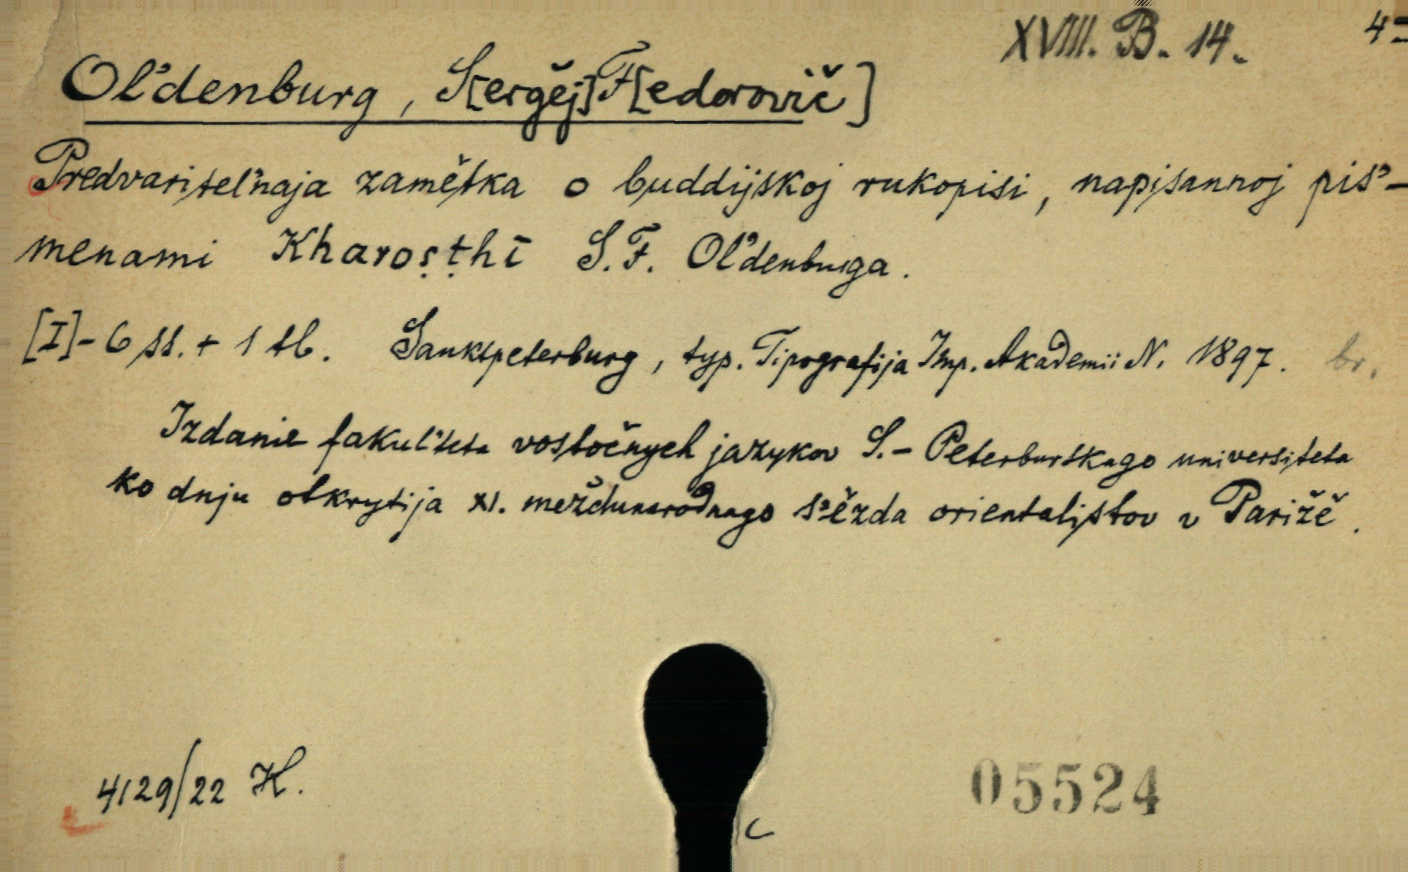 XVIII. B. 14. 4=
Ol'denburg, S[ergěj] F[edorovič]
Predvaritel'naja zamětka o buddijskoj rukopisi, napisannoj pis'-
menami Kharoṣṭhī S. F. Ol'denburga.
[I]-6 ss. + 1 tb. Sanktpeterburg, typ. Tipografija Imp. Akademii N. 1897. br.
Izdanie fakul'teta vostočnych jazykov S.-Peterburskago universiteta
ko dnju otkrytija XI. meždunarodnago s'ězda orientalistov v Parižě.
4129/22 K.
05524